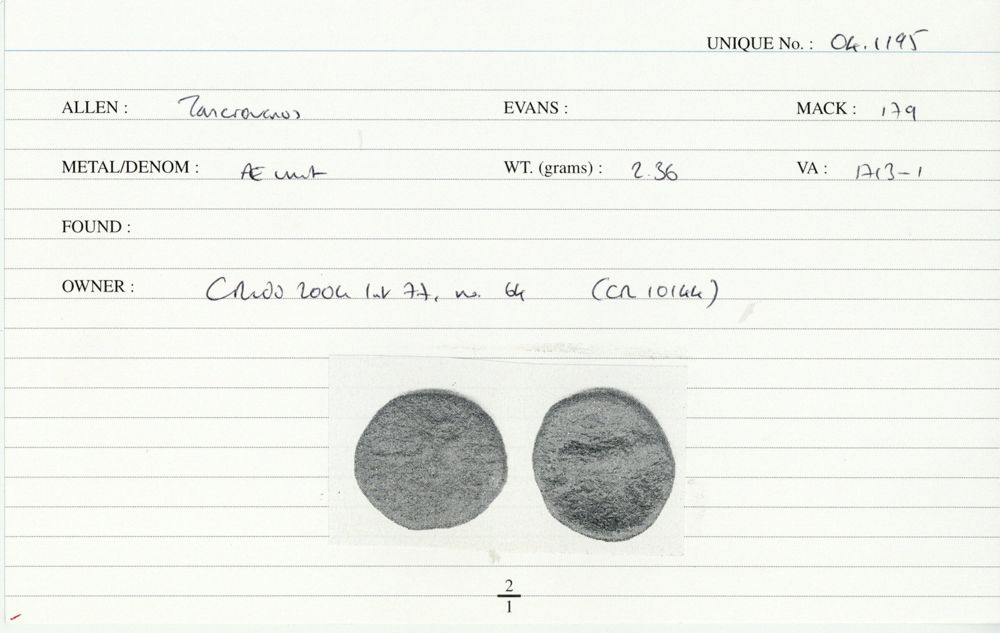 UNIQUE No. : 04.1195
ALLEN : Tasciovanos EVANS : MACK : 179
METAL/DENOM : Æ unit WT. (grams) : 2.36 VA : 1713-1
FOUND :
OWNER : 2004 77, no. 64 (CR 10144)
2
1